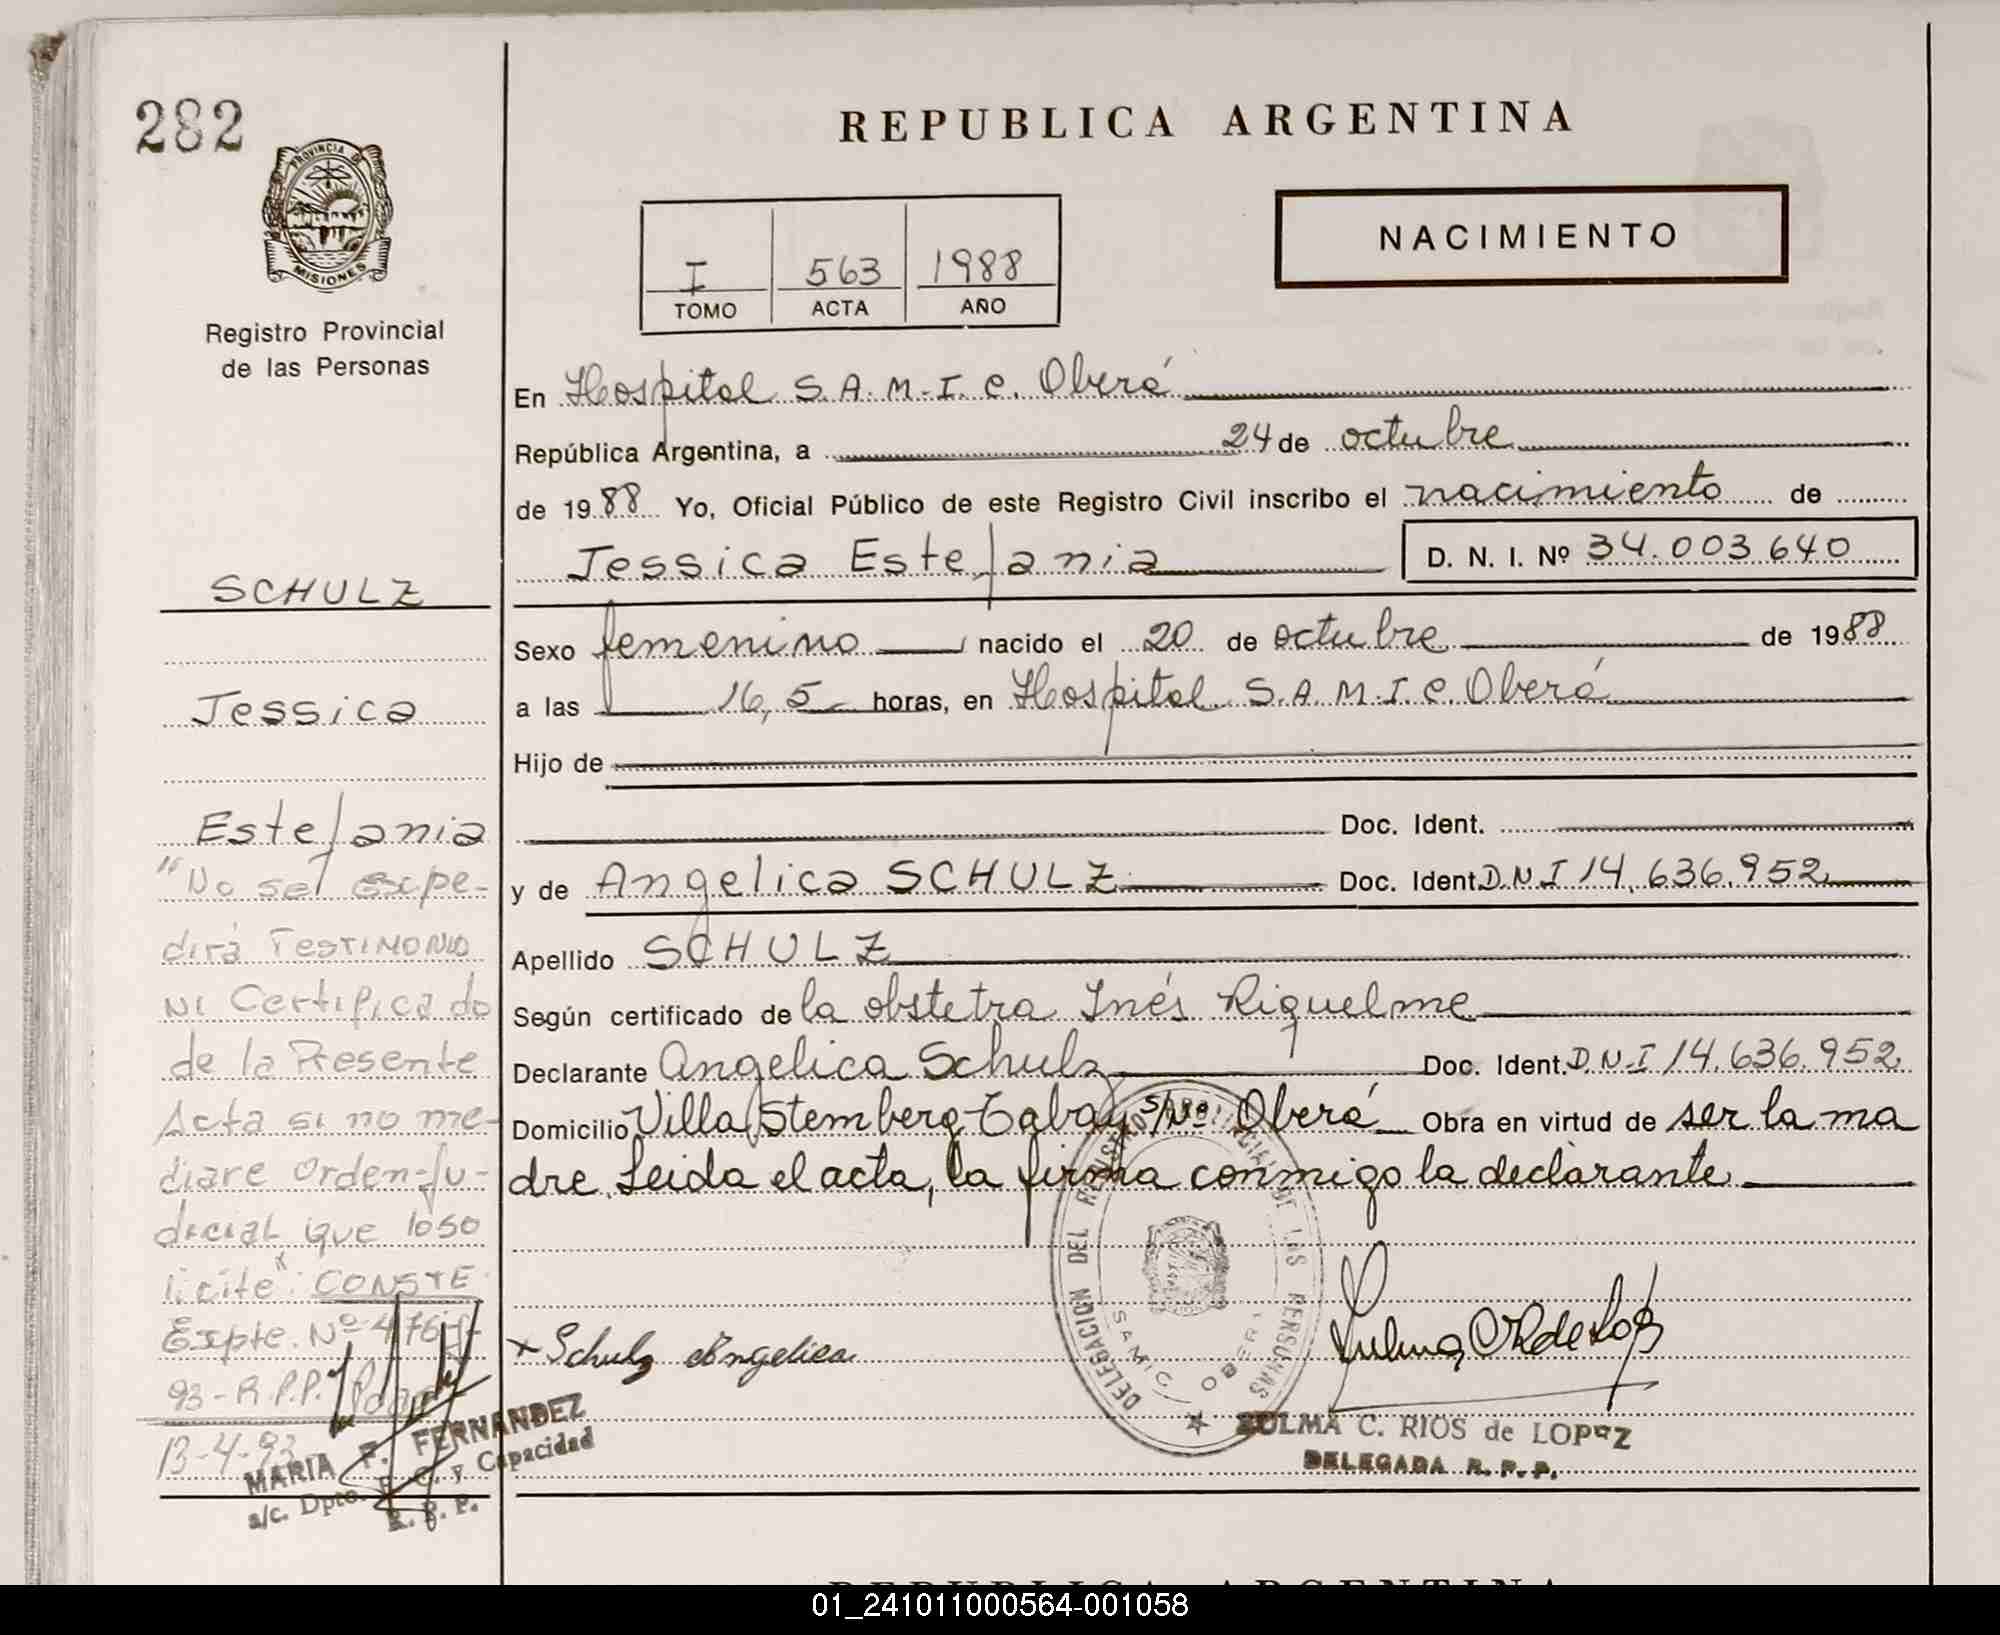 282
REPUBLICA ARGENTINA
PROVINCIA DE
MISIONES
Registro Provincial
de las Personas
NACIMIENTO
I 563 1988
TOMO ACTA AÑO
En Hospital S.A.M.I.C. Oberá
República Argentina, a 24 de octubre
de 1988 Yo, Oficial Público de este Registro Civil inscribo el nacimiento de
Jessica Estefania D. N. I. Nº 34.003.640
Sexo femenino nacido el 20 de octubre de 1988
a las 16,5 horas, en Hospital S.A.M.I.C. Oberá
Hijo de
Doc. Ident.
y de Angelica SCHULZ Doc. Ident. D.N.I 14.636.952
Apellido SCHULZ
Según certificado de la obstetra Inés Riquelme
Declarante Angelica Schulz Doc. Ident. D.N.I 14.636.952
Domicilio Villa Stemberg-Tabay s/Nº Oberá Obra en virtud de ser la ma
dre, Leida el acta, la firma conmigo la declarante
SCHULZ
Jessica
Estefania
"No se expe-
dirá Testimonio
ni Certificado
de la Presente
Acta si no me-
diare Orden Ju-
dicial que lo so
licite": CONSTE
Expte. Nº 476
93-R.P.P.
13-4-93
MARIA F. FERNANDEZ
a/c. Dpto. C. y Capacidad
R. R. P.
x Schulz Angelica
DELEGACION DEL REGISTRO PROVINCIAL DE LAS PERSONAS
SAMIC OBERA
ZULMA C. RIOS de LOPEZ
DELEGADA R. P. P.
REPUBLICA ARGENTINA
01_241011000564-001058